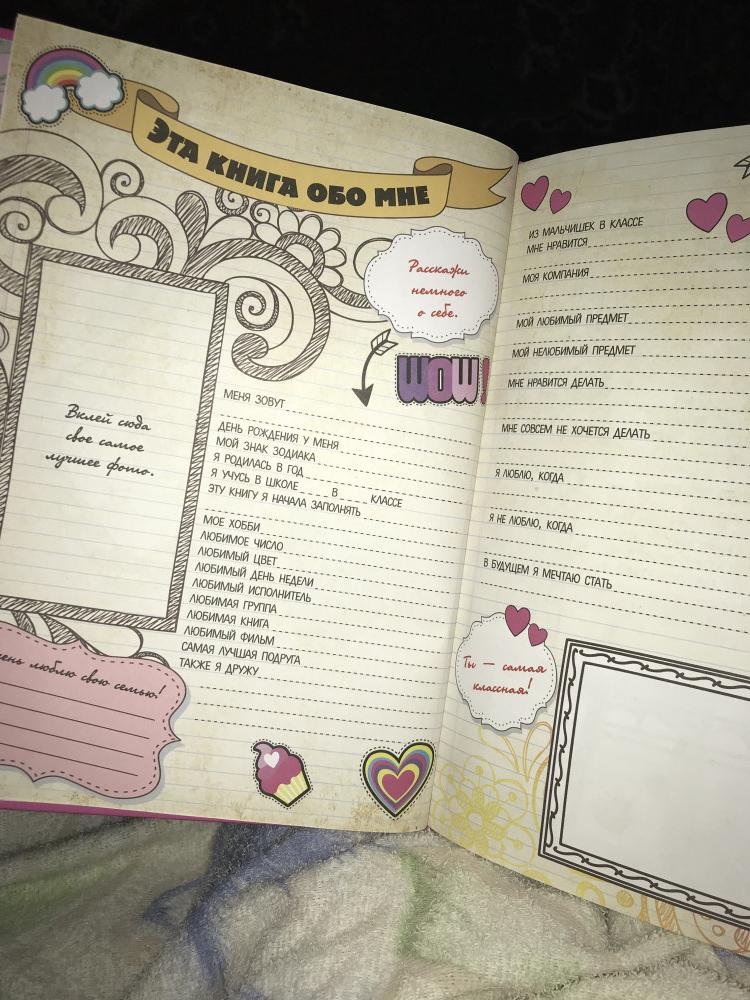 ЭТА КНИГА ОБО МНЕ
Расскажи
немного
о себе.
WOW!
Вклей сюда
свое самое
лучшее фото.
МЕНЯ ЗОВУТ
ДЕНЬ РОЖДЕНИЯ У МЕНЯ
МОЙ ЗНАК ЗОДИАКА
Я РОДИЛАСЬ В ГОД
Я УЧУСЬ В ШКОЛЕ В КЛАССЕ
ЭТУ КНИГУ Я НАЧАЛА ЗАПОЛНЯТЬ
МОЕ ХОББИ
ЛЮБИМОЕ ЧИСЛО
ЛЮБИМЫЙ ЦВЕТ
ЛЮБИМЫЙ ДЕНЬ НЕДЕЛИ
ЛЮБИМЫЙ ИСПОЛНИТЕЛЬ
ЛЮБИМАЯ ГРУППА
ЛЮБИМАЯ КНИГА
ЛЮБИМЫЙ ФИЛЬМ
САМАЯ ЛУЧШАЯ ПОДРУГА
ТАКЖЕ Я ДРУЖУ
люблю свою семью!
ИЗ МАЛЬЧИШЕК В КЛАССЕ
МНЕ НРАВИТСЯ
МОЯ КОМПАНИЯ
МОЙ ЛЮБИМЫЙ ПРЕДМЕТ
МОЙ НЕЛЮБИМЫЙ ПРЕДМЕТ
МНЕ НРАВИТСЯ ДЕЛАТЬ
МНЕ СОВСЕМ НЕ ХОЧЕТСЯ ДЕЛАТЬ
Я ЛЮБЛЮ, КОГДА
Я НЕ ЛЮБЛЮ, КОГДА
В БУДУЩЕМ Я МЕЧТАЮ СТАТЬ
Ты — самая
классная!